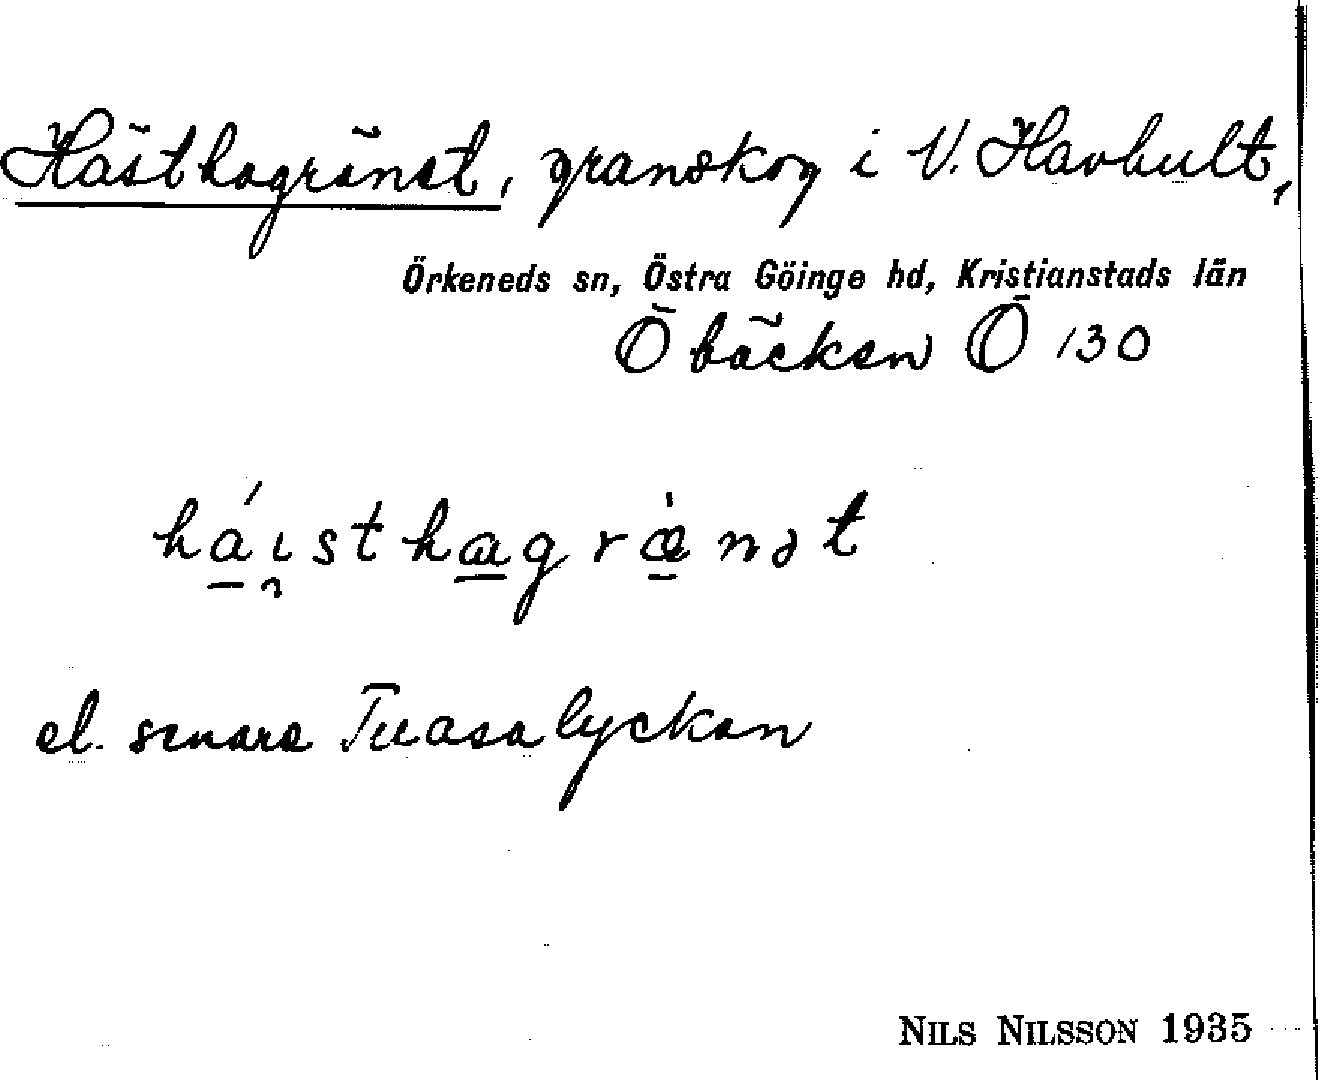 Hästhagränet, granskog i V. Havhult,
Örkeneds sn, Östra Göinge hd, Kristianstads län
Ö bäcken Ö 130
há̱ı̯stha̱græ̱̀nət
el. senare Tuasalyckan
NILS NILSSON 1935